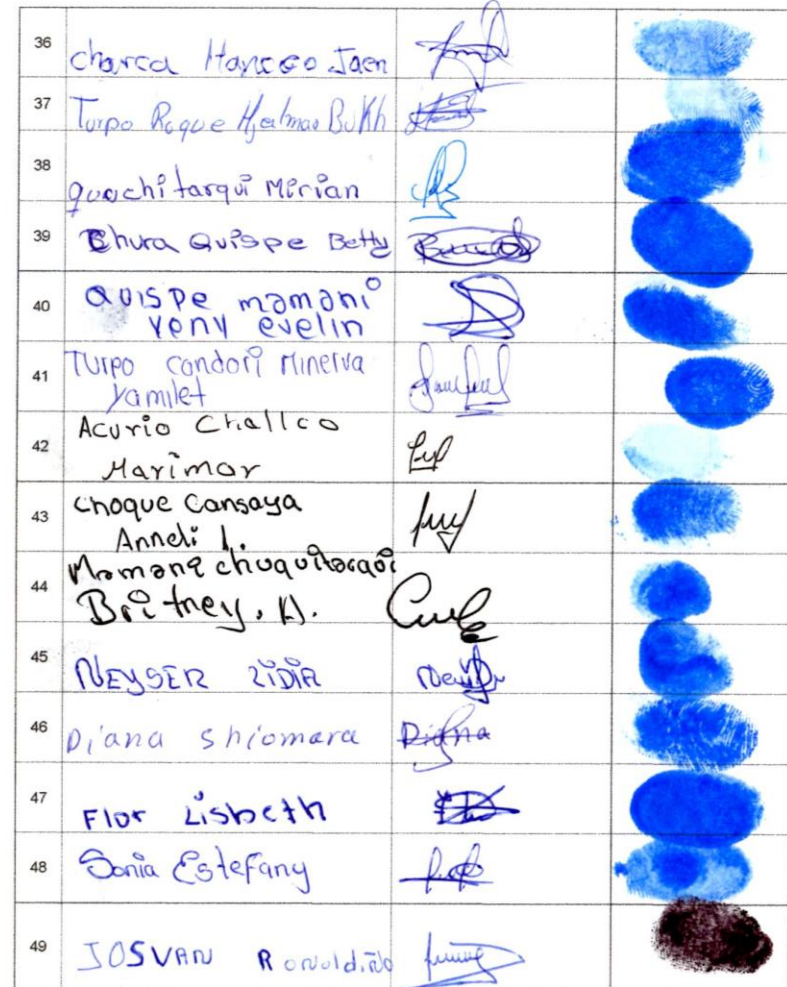 36 Charca Hancco Jaen
37 Turpo Roque Hjalmar Bukh
38 quochitarqui Mirian
39 Chura Quispe Betty
40 QUISPE mamani
YENY evelin
41 Turpo condori Minerva
Yamilet
42 Acurio Challco
Marimar
43 choque Cansaya
Anneli L.
44 Mamani chuquitarqui
Britney. A.
45 NEYSER LIDIA
46 Diana Shiomara Diana
47 Flor Lisbeth
48 Sonia Estefany
49 JOSVAN Ronaldiño